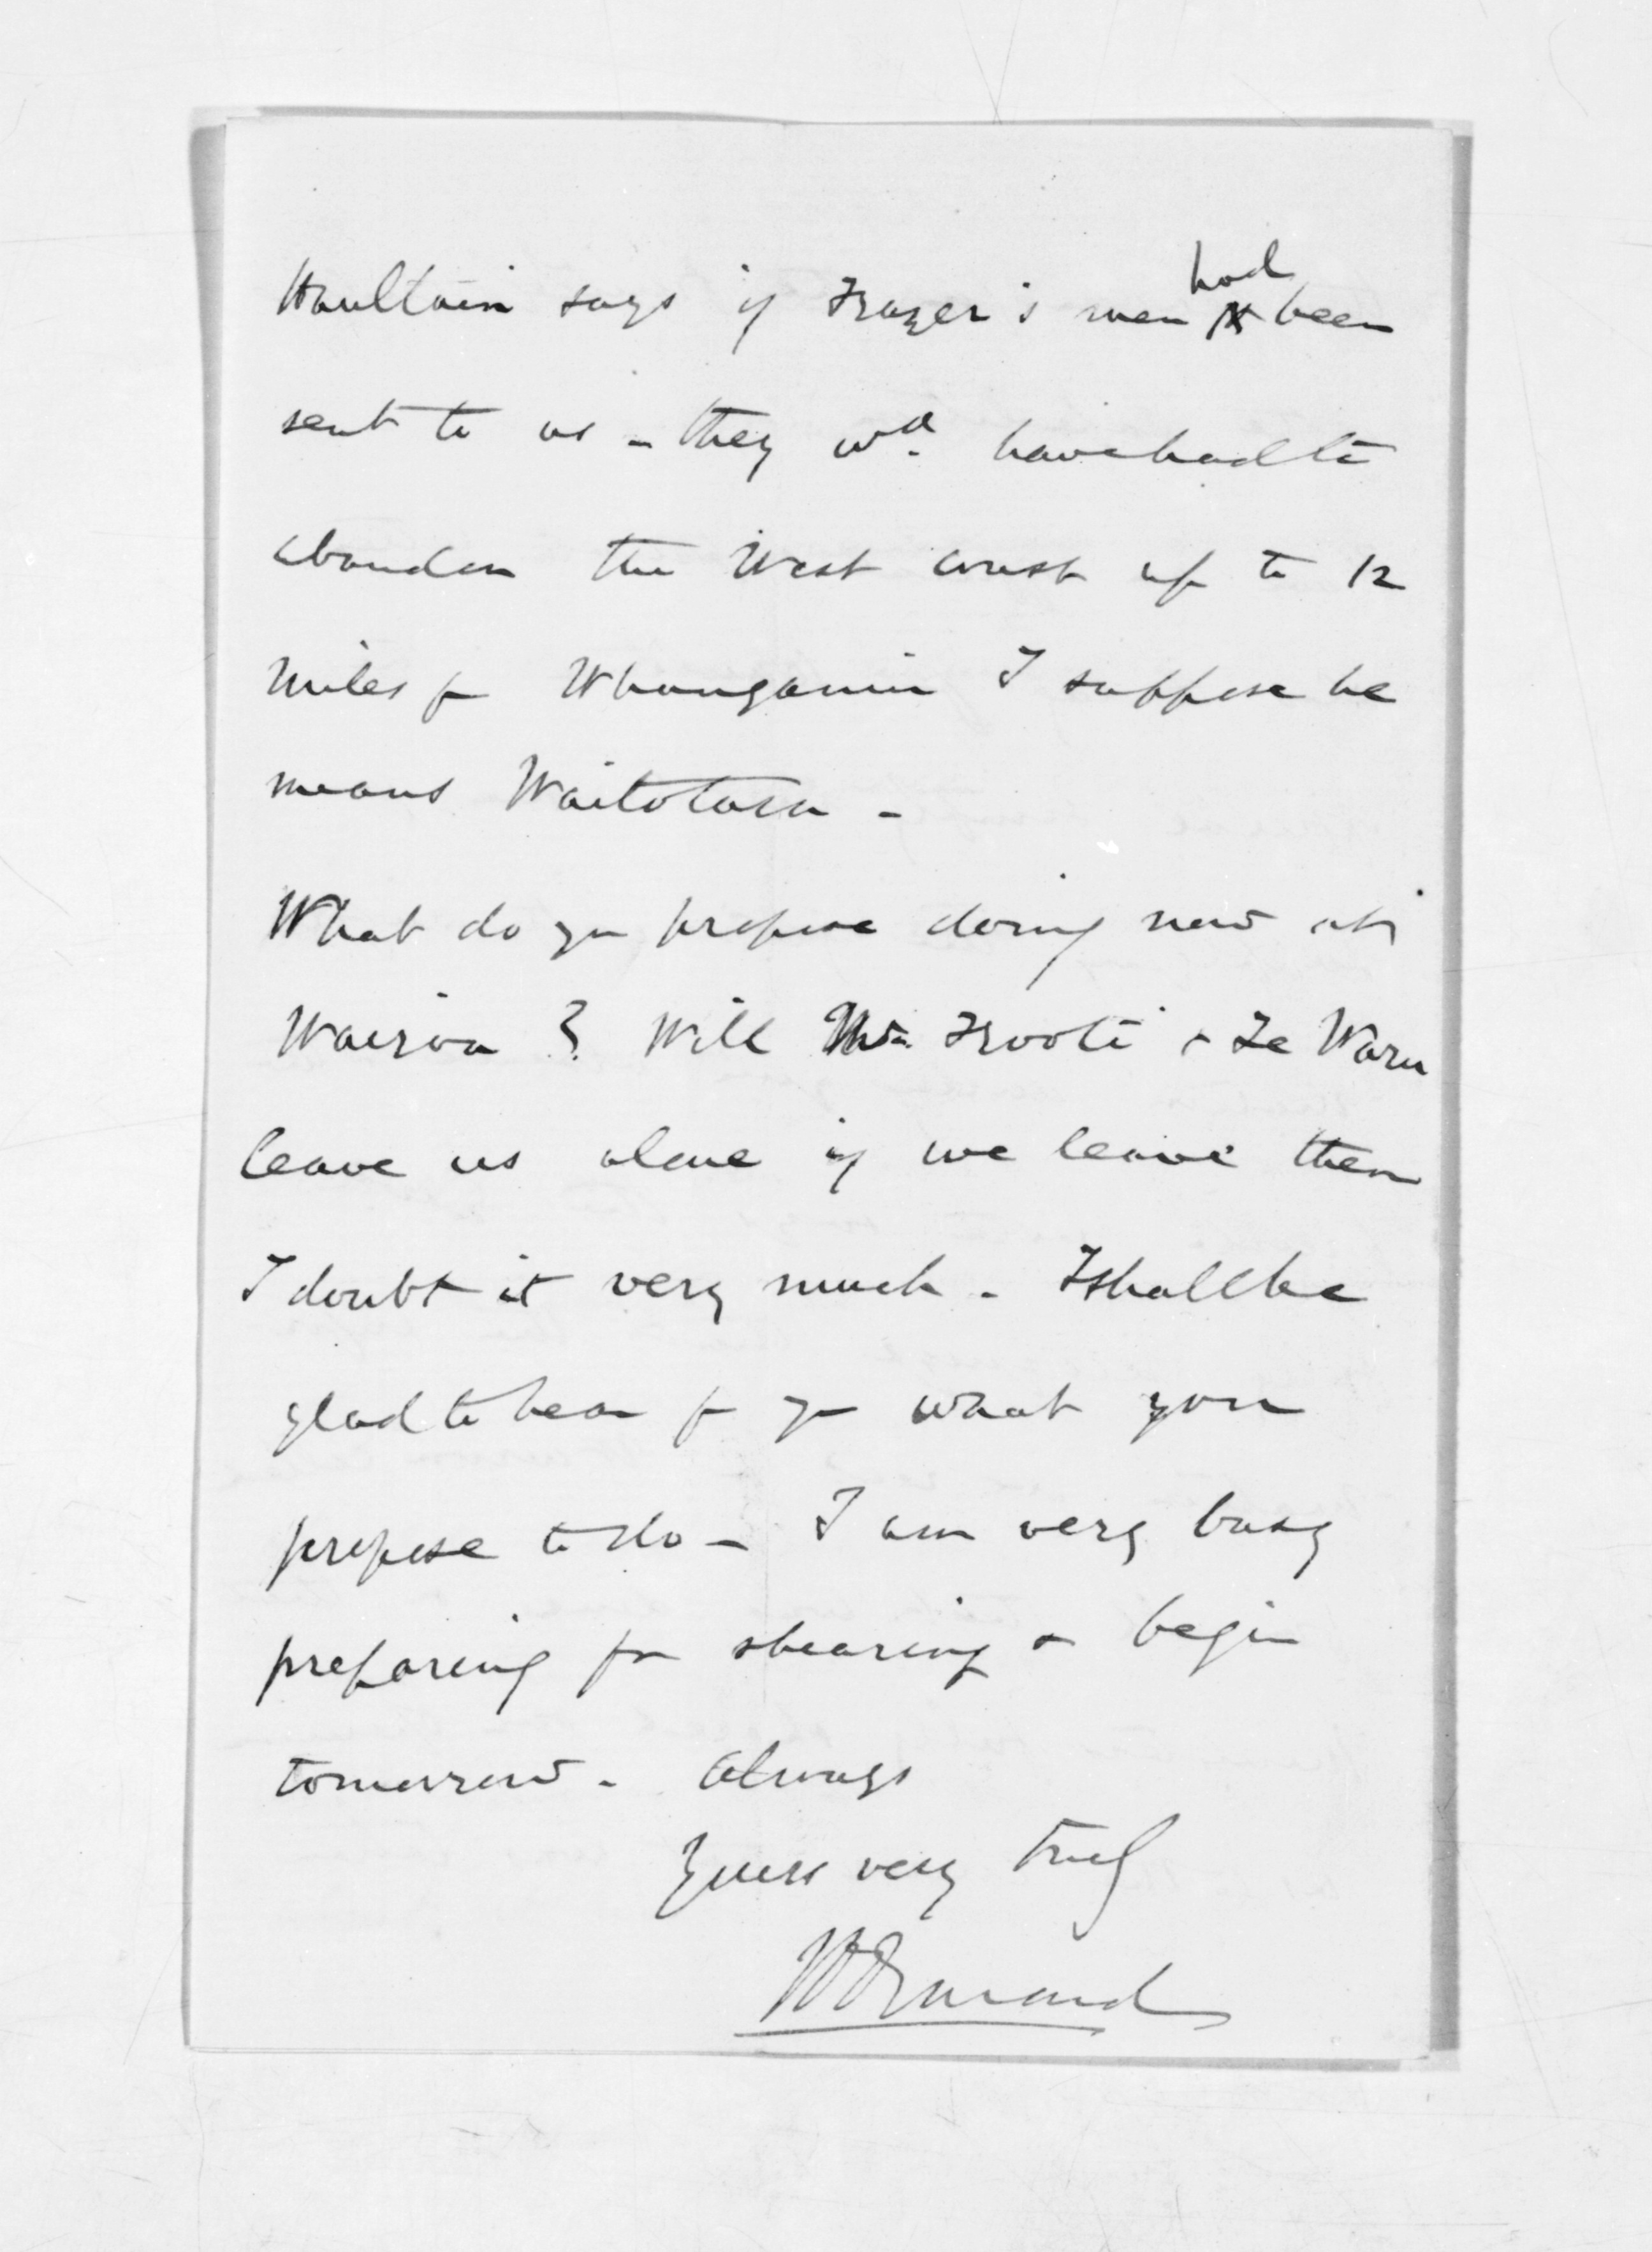 Haultain says if Frazer's men had been
sent to us - they wd. have had to
abandon the West coast up to 12
miles fr Whanganui I suppose he
means Waitotara -
What do yu propose doing now at
Wairoa? Will Te Kooti & Te Waru
leave us alone if we leave them
I doubt it very much - I shall be
glad to hear fr yu what you
propose to do - I am very busy
preparing for shearing & begin
tomorrow - always
Yours very truly
JDOrmond